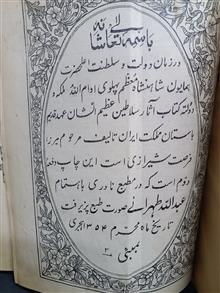 باسمه تعالی شانه
در زمان دولت و سلطنت اعلیحضرت
همایون شاهنشاه معظم پهلوی ادام الله ملکه و
دولته کتاب آثار سلاطین عظیم الشان عهد قدیم
باستان مملکت ایران تالیف مرحوم میرزا
فرصت شیرازی است این چاپ دفعه
دوم است که در مطبع نادری باهتمام
عبدالله طهرانی صورت طبع پذیرفت
تاریخ ماه محرم ۱۳۵۴ هجری
بمبئی